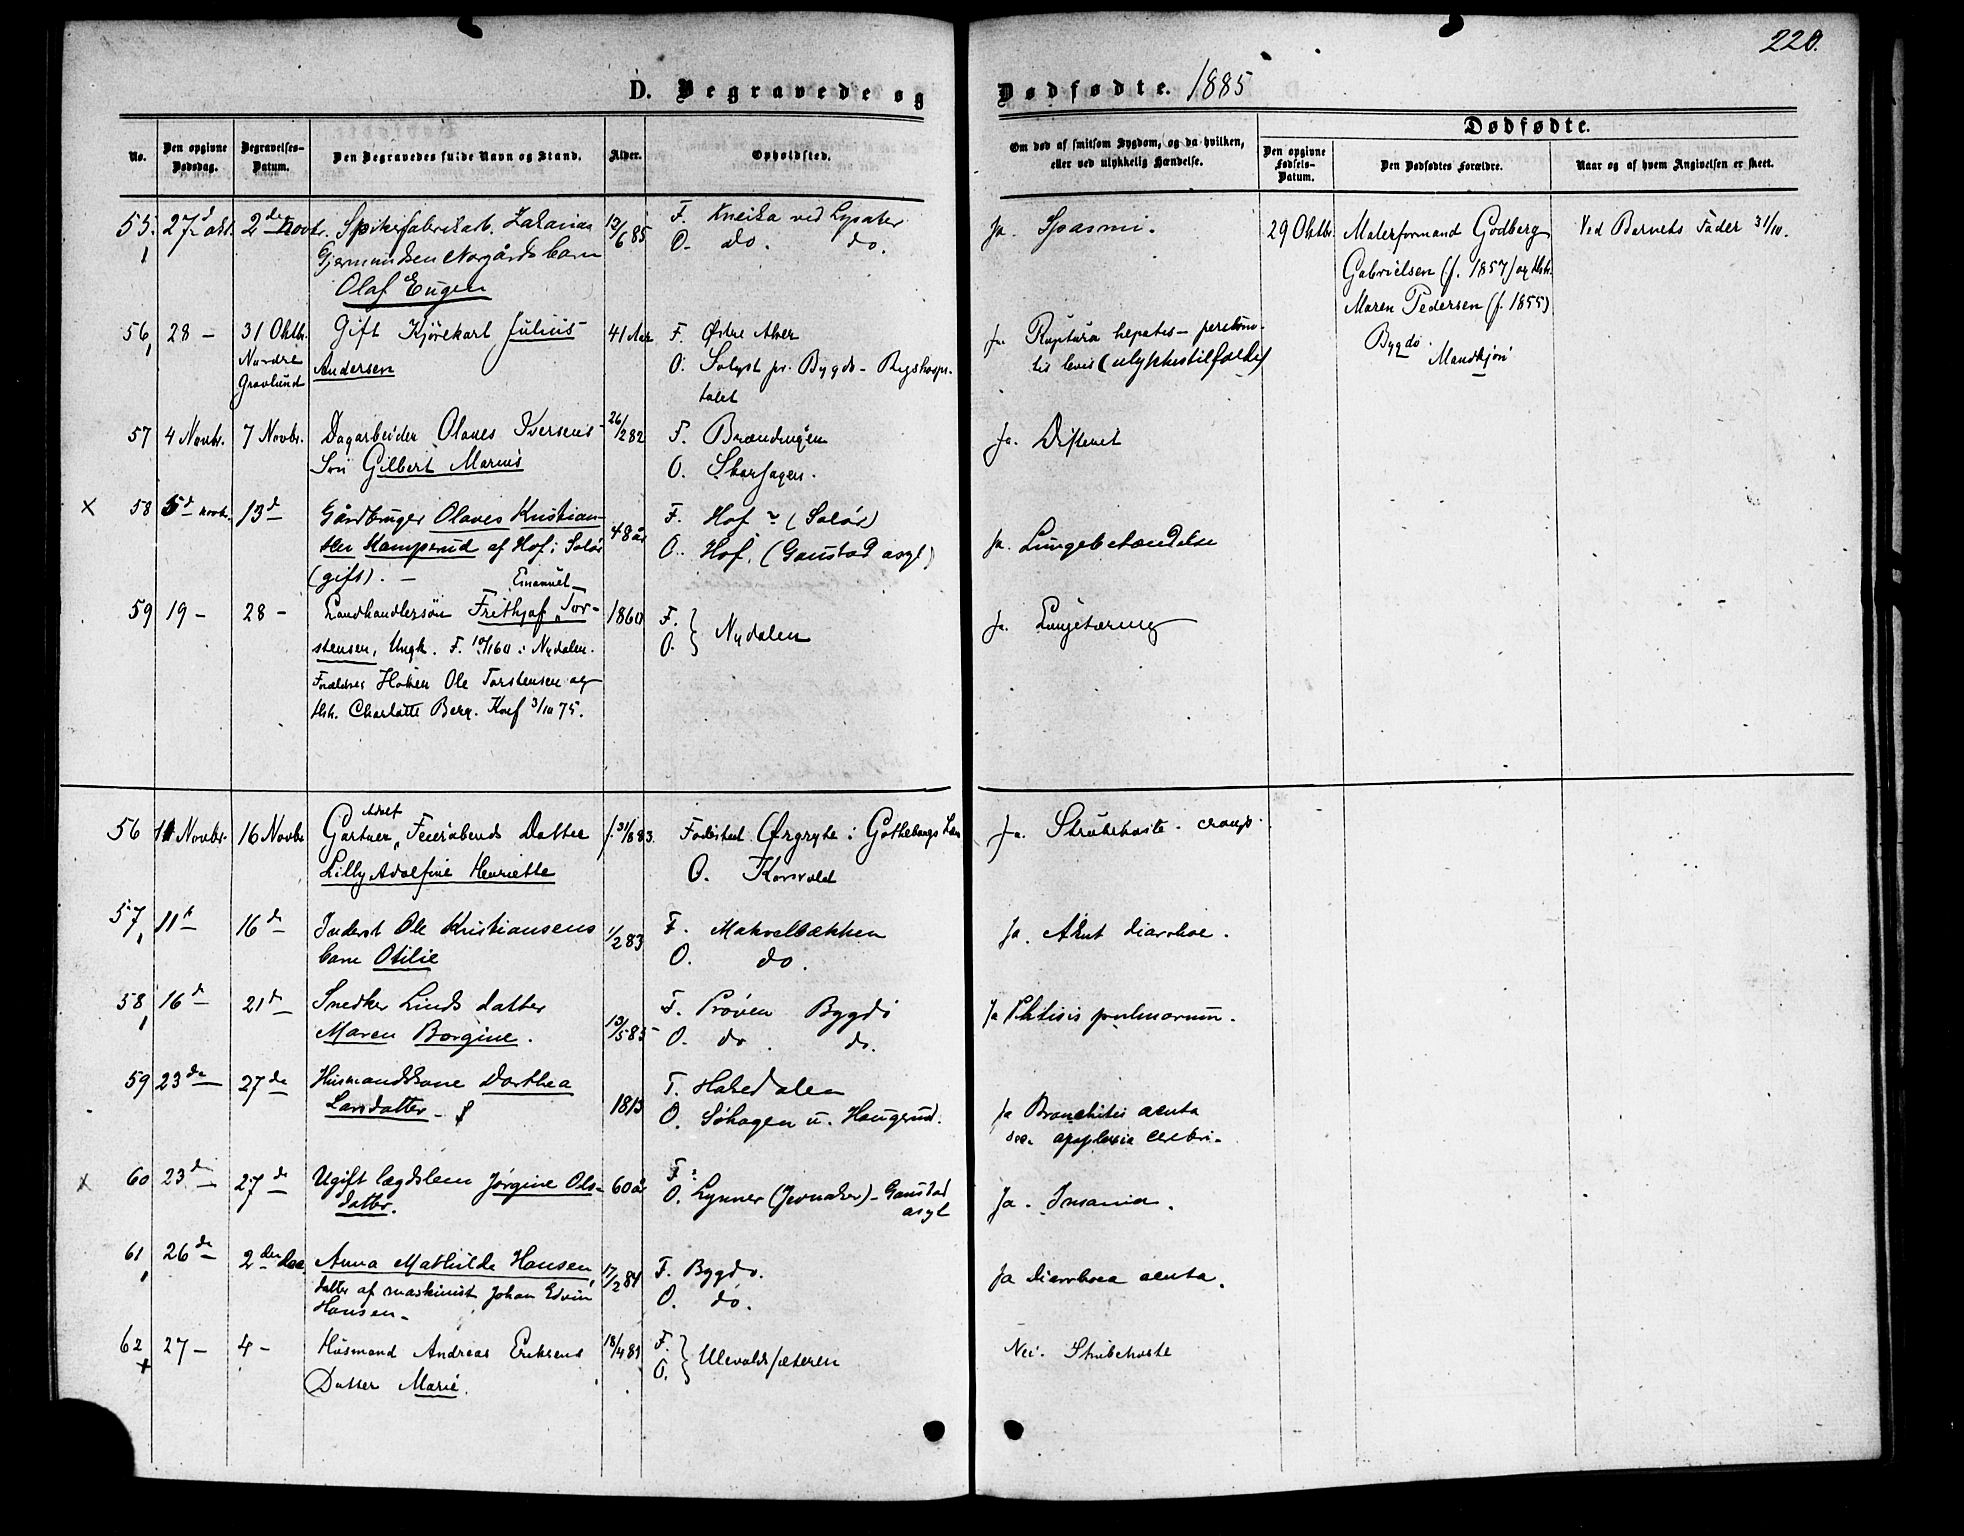 220.
D. Begravede og Dødfødte. 1885
No.
Den opgivne Dødsdag.
Begravelses-Datum.
Den Begravedes fulde Navn og Stand.
Alder.
Opholdsted.
Om død af smitsom Sygdom, og da hvilken, eller ved ulykkelig Hændelse.
Dødfødte.
Den opgivne Fødsels-Datum.
Den Dødfødtes Forældre.
Naar og af hvem Angivelsen er skeet.
55. 27d okt. 2den Novbr. Spikerfabrikarb. Zakarias 12/6 85 F. Kneika ved Lysaker Ja. Spasmi.
Gjermundsen Norgårds barn O. do. do.
Olaf Eugen
29 Oktbr. Malerformand Godberg Ved Barnets Fader 31/10.
Gabrielsen (f. 1857) og Hstr.
Maren Pedersen (f. 1855)
Bygdø.
Mandkjøn
56, 28 - 31 Oktbr. Gift Kjørekarl Julius 41 Aar F. Østre Aker Ja. Ruptura hepatis - peritoni-
Nordre Gravlund Andersen O. Solyst pr. Bygdø - Rigshospi- tis levis (ulykkestilfælde)
talet
57 4 Novbr. 7 Novbr. Dagarbeider Olaves Iversens 26/2 82 F. Brændingen Ja. Difterit
Søn Gilbert Marius O. Skorhagen.
x 58 5d novbr. 13d Gårdbruger Olaves Kristian- 48 år F. Hof ? (Solør) Ja. Lungebetændelse
sen Kamperud af Hof i Solør O. Hof. (Gaustad asyl)
(gift). -
Emanuel
59 19 - 28 - Landhandlersøn Frithjof Tor- 1860 F. O. } Nydalen Ja. Lungetæring
stensen, Ungk. F. 10/1 60 i Nydalen.
Forældre Hoken Ole Torstensen og
Hstr. Charlotte Berg. Konf 3/10 75.
56 11 Novbr. 16 Novbr Gartner Adolf Feierabends Datter f. 31/8 83. Fødested Ørgryte i Gothebongs Län Ja. Strubehoste - croup.
Lilly Adolfine Henriette O. Korsvold
57, 11 16de Inderst Ole Kristiansens 1/2 83 F. Makrelbækken Ja. Akut diarrhoe.
barn Otilie O. do.
58, 16de 21de Snedker Linds datter 13/5 85 F. Prøven Bygdø Ja Phtisis pulmonum.
Maren Borgine. O. do. do.
59 23de 27de Husmandskone Dorthea 1813 F. Hakedalen Ja Bronchitis acuta
Larsdatter - O. Søhagen u. Haugerud. apoplexia cerebri.
x 60 23de 27de Ugift lægdslem Jørgine Ols- 60 år F: Ja. Insania.
datter. O. Lynner (Jevnaker) - Gaustad
asyl
61, 26de 2den Dec. Anna Mathilde Hansen, 17/2 84 F. Bygdø. Ja Diarrhoea acuta.
datter af maskinist Johan Edvin O. do.
Hansen.
62 + 27 - 4 - Husmand Andreas Eriksens 18/4 81 F. O. } Ullevaldssæteren Nei. Strubehoste
Datter Marie.